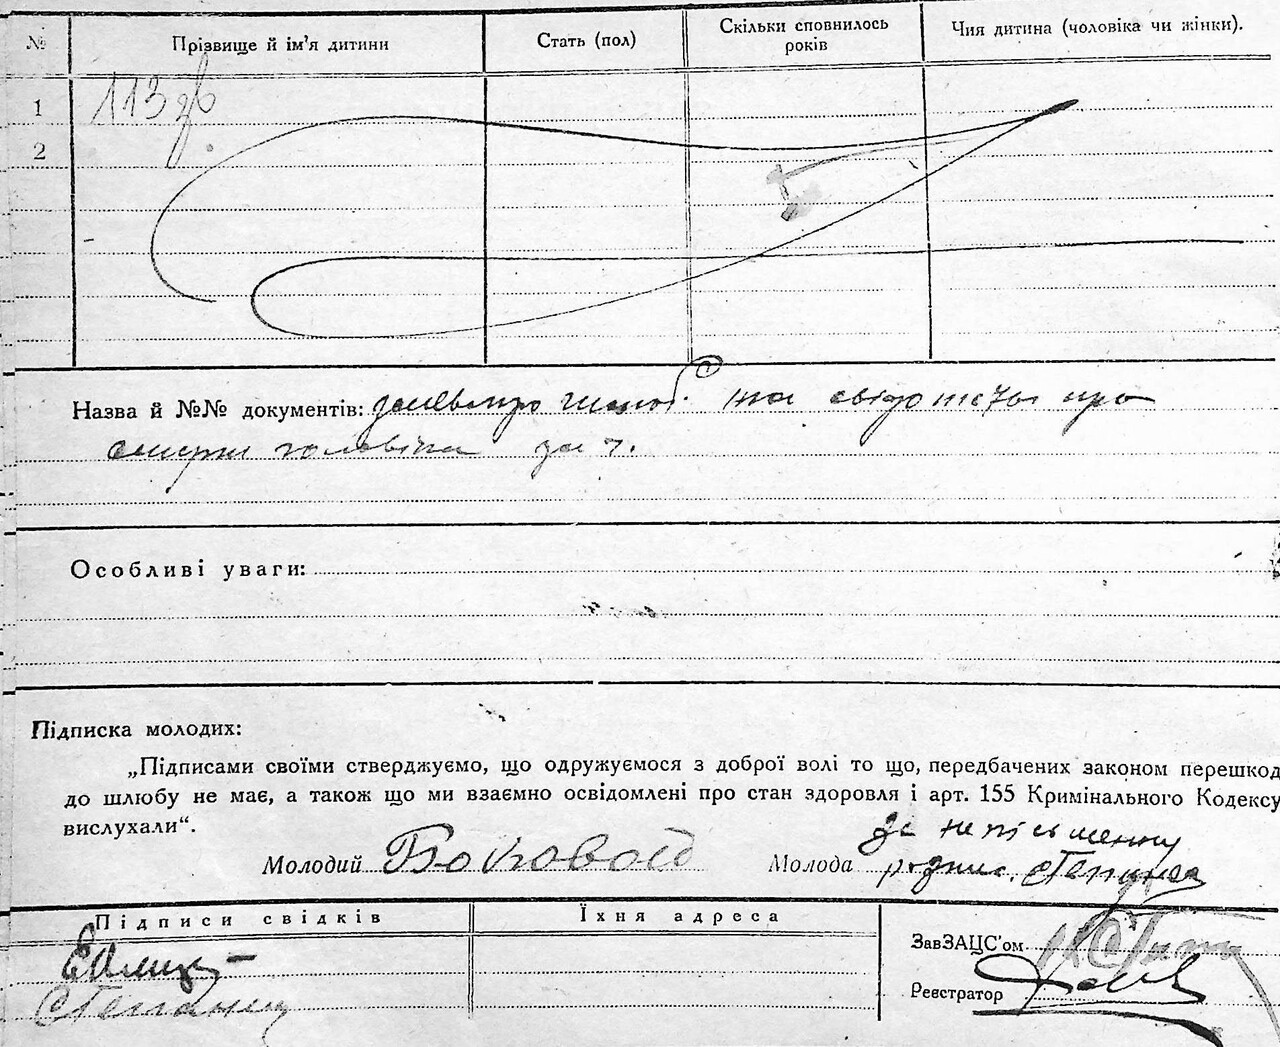 № Прізвище й ім'я дитини Стать (пол) Скільки сповнилось років Чия дитина (чоловіка чи жінки).
1 113
2
Назва й №№ документів: на про
смерть чоловіка за
Особливі уваги:
Підписка молодих:
„Підписами своїми стверджуємо, що одружуємося з доброї волі то що, передбачених законом перешкод
до шлюбу не має, а також що ми взаємно освідомлені про стан здоровля і арт. 155 Кримінального Кодексу
вислухали“.
за неписьменну
Молодий Молода
Підписи свідків Їхня адреса
ЗавЗАЦС'ом
Реєстратор